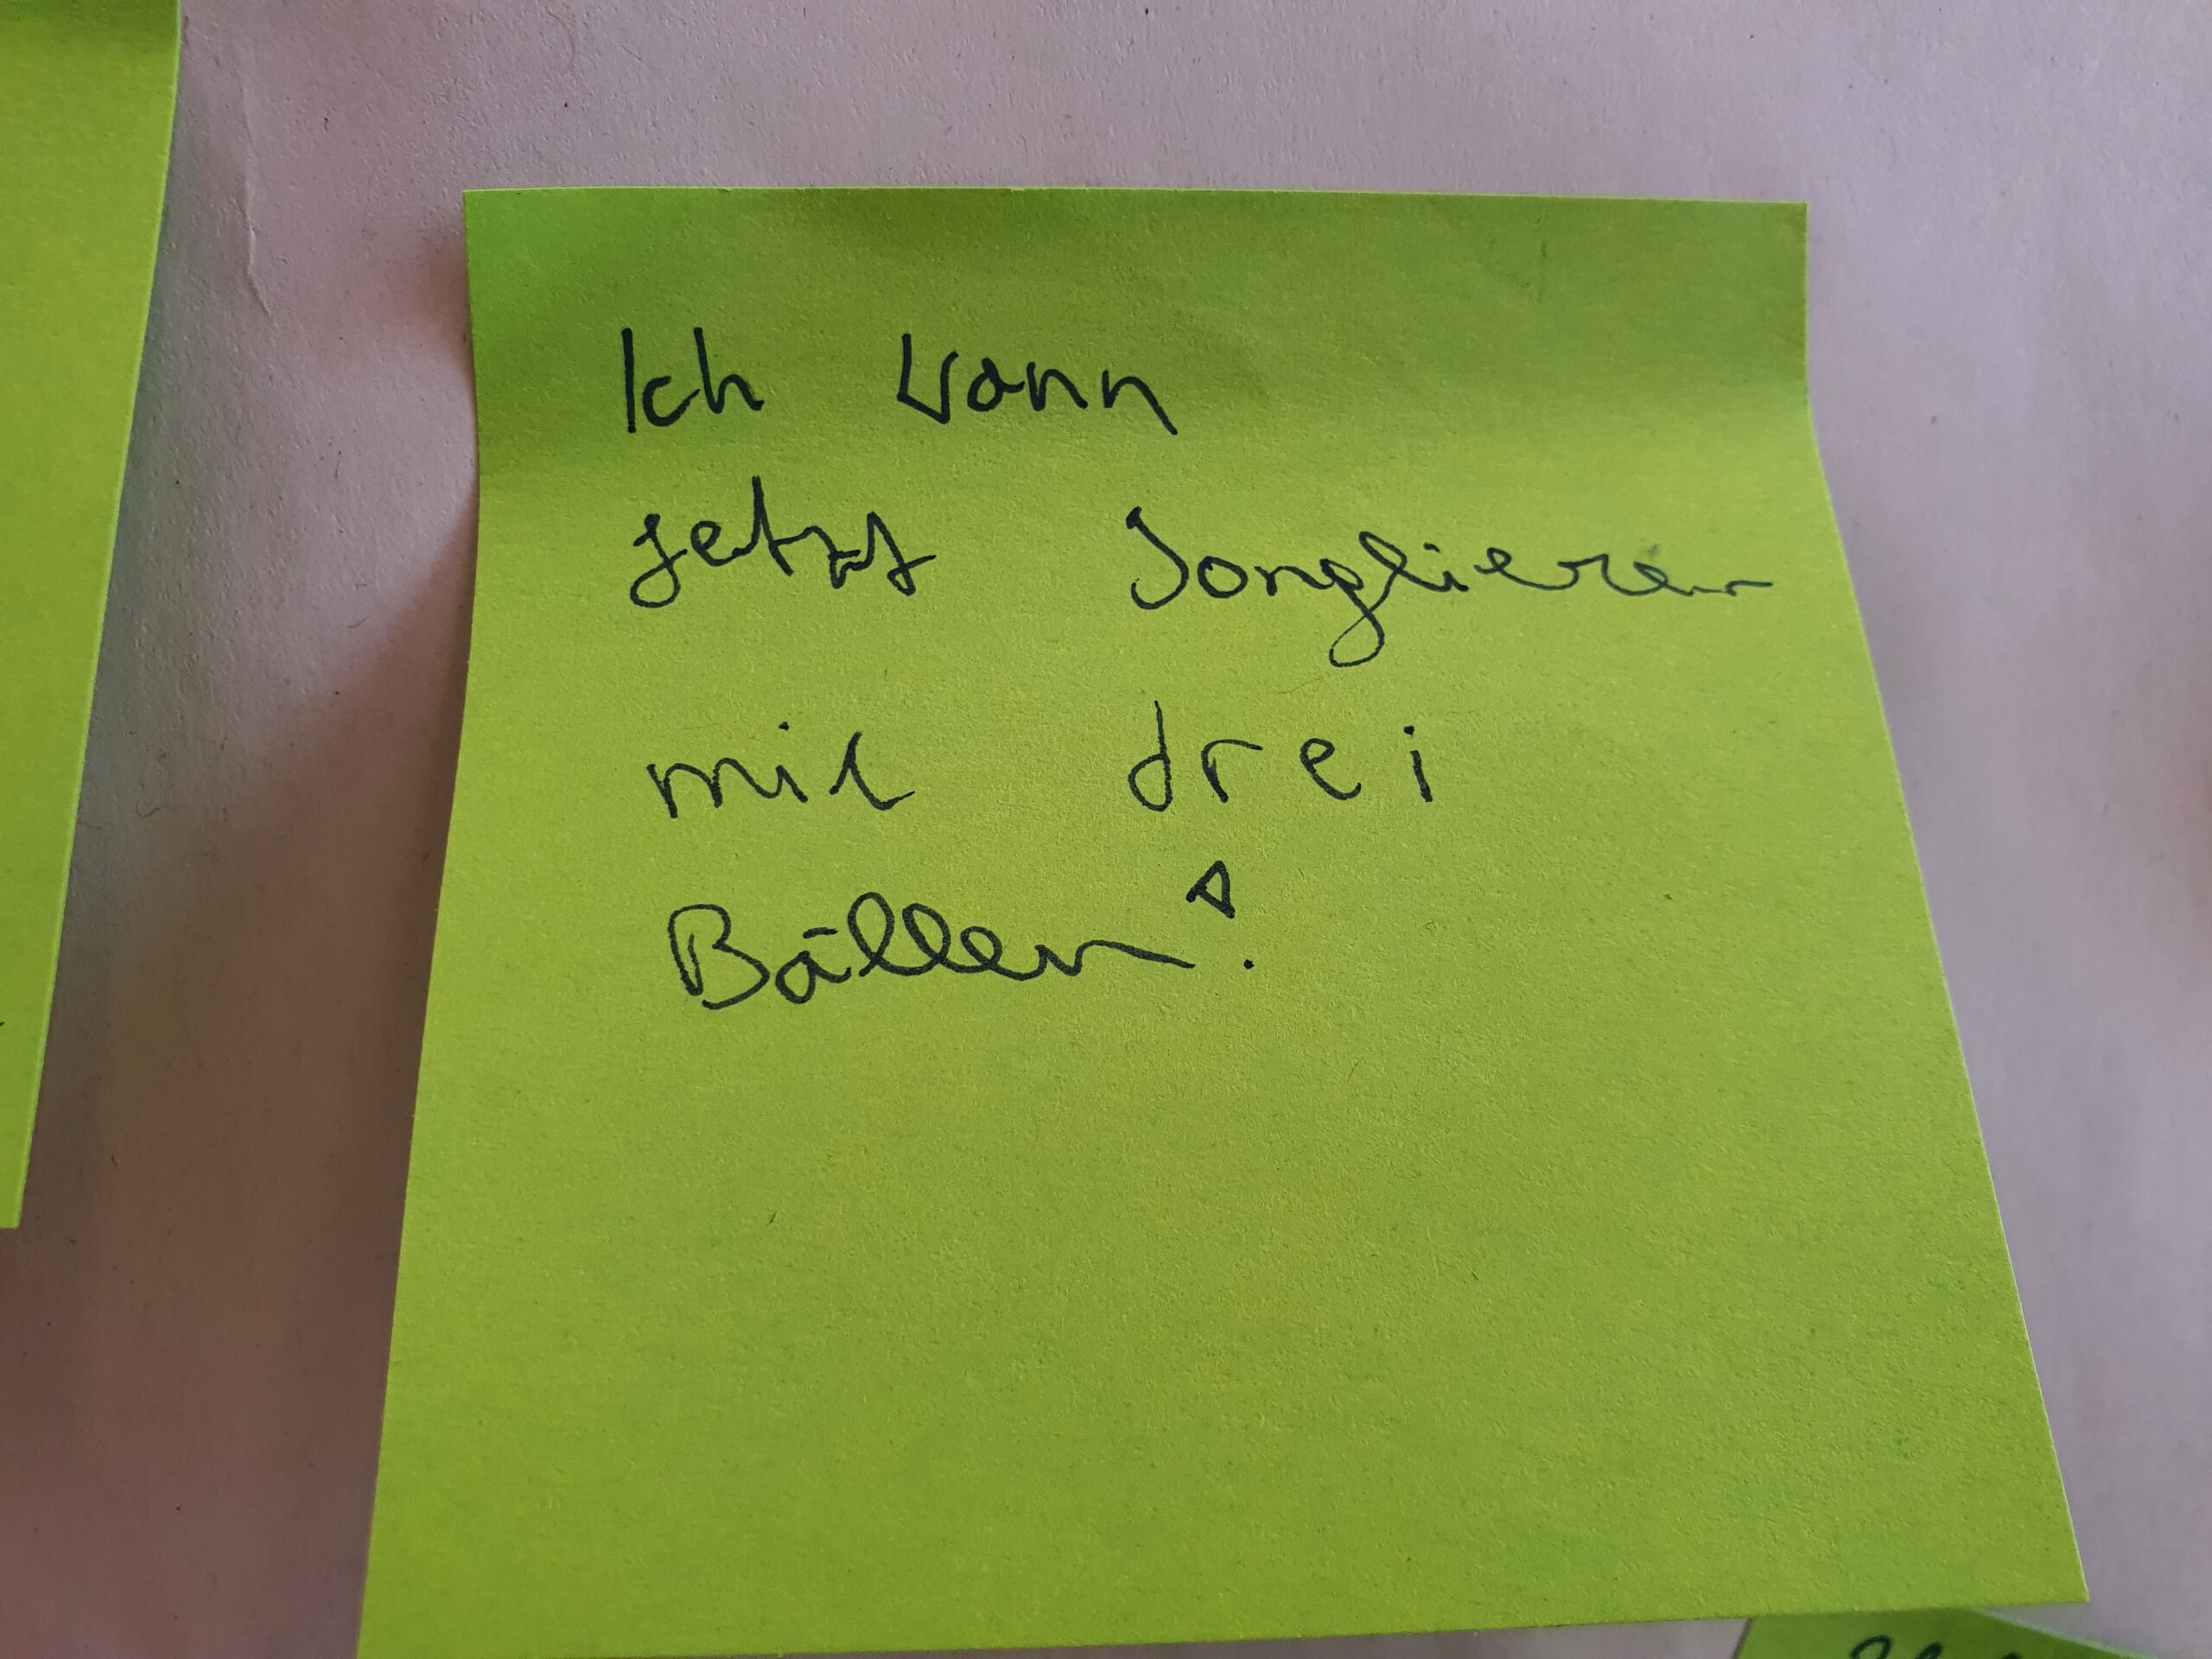 Ich kann
jetzt Jonglieren
mit drei
Bällen!